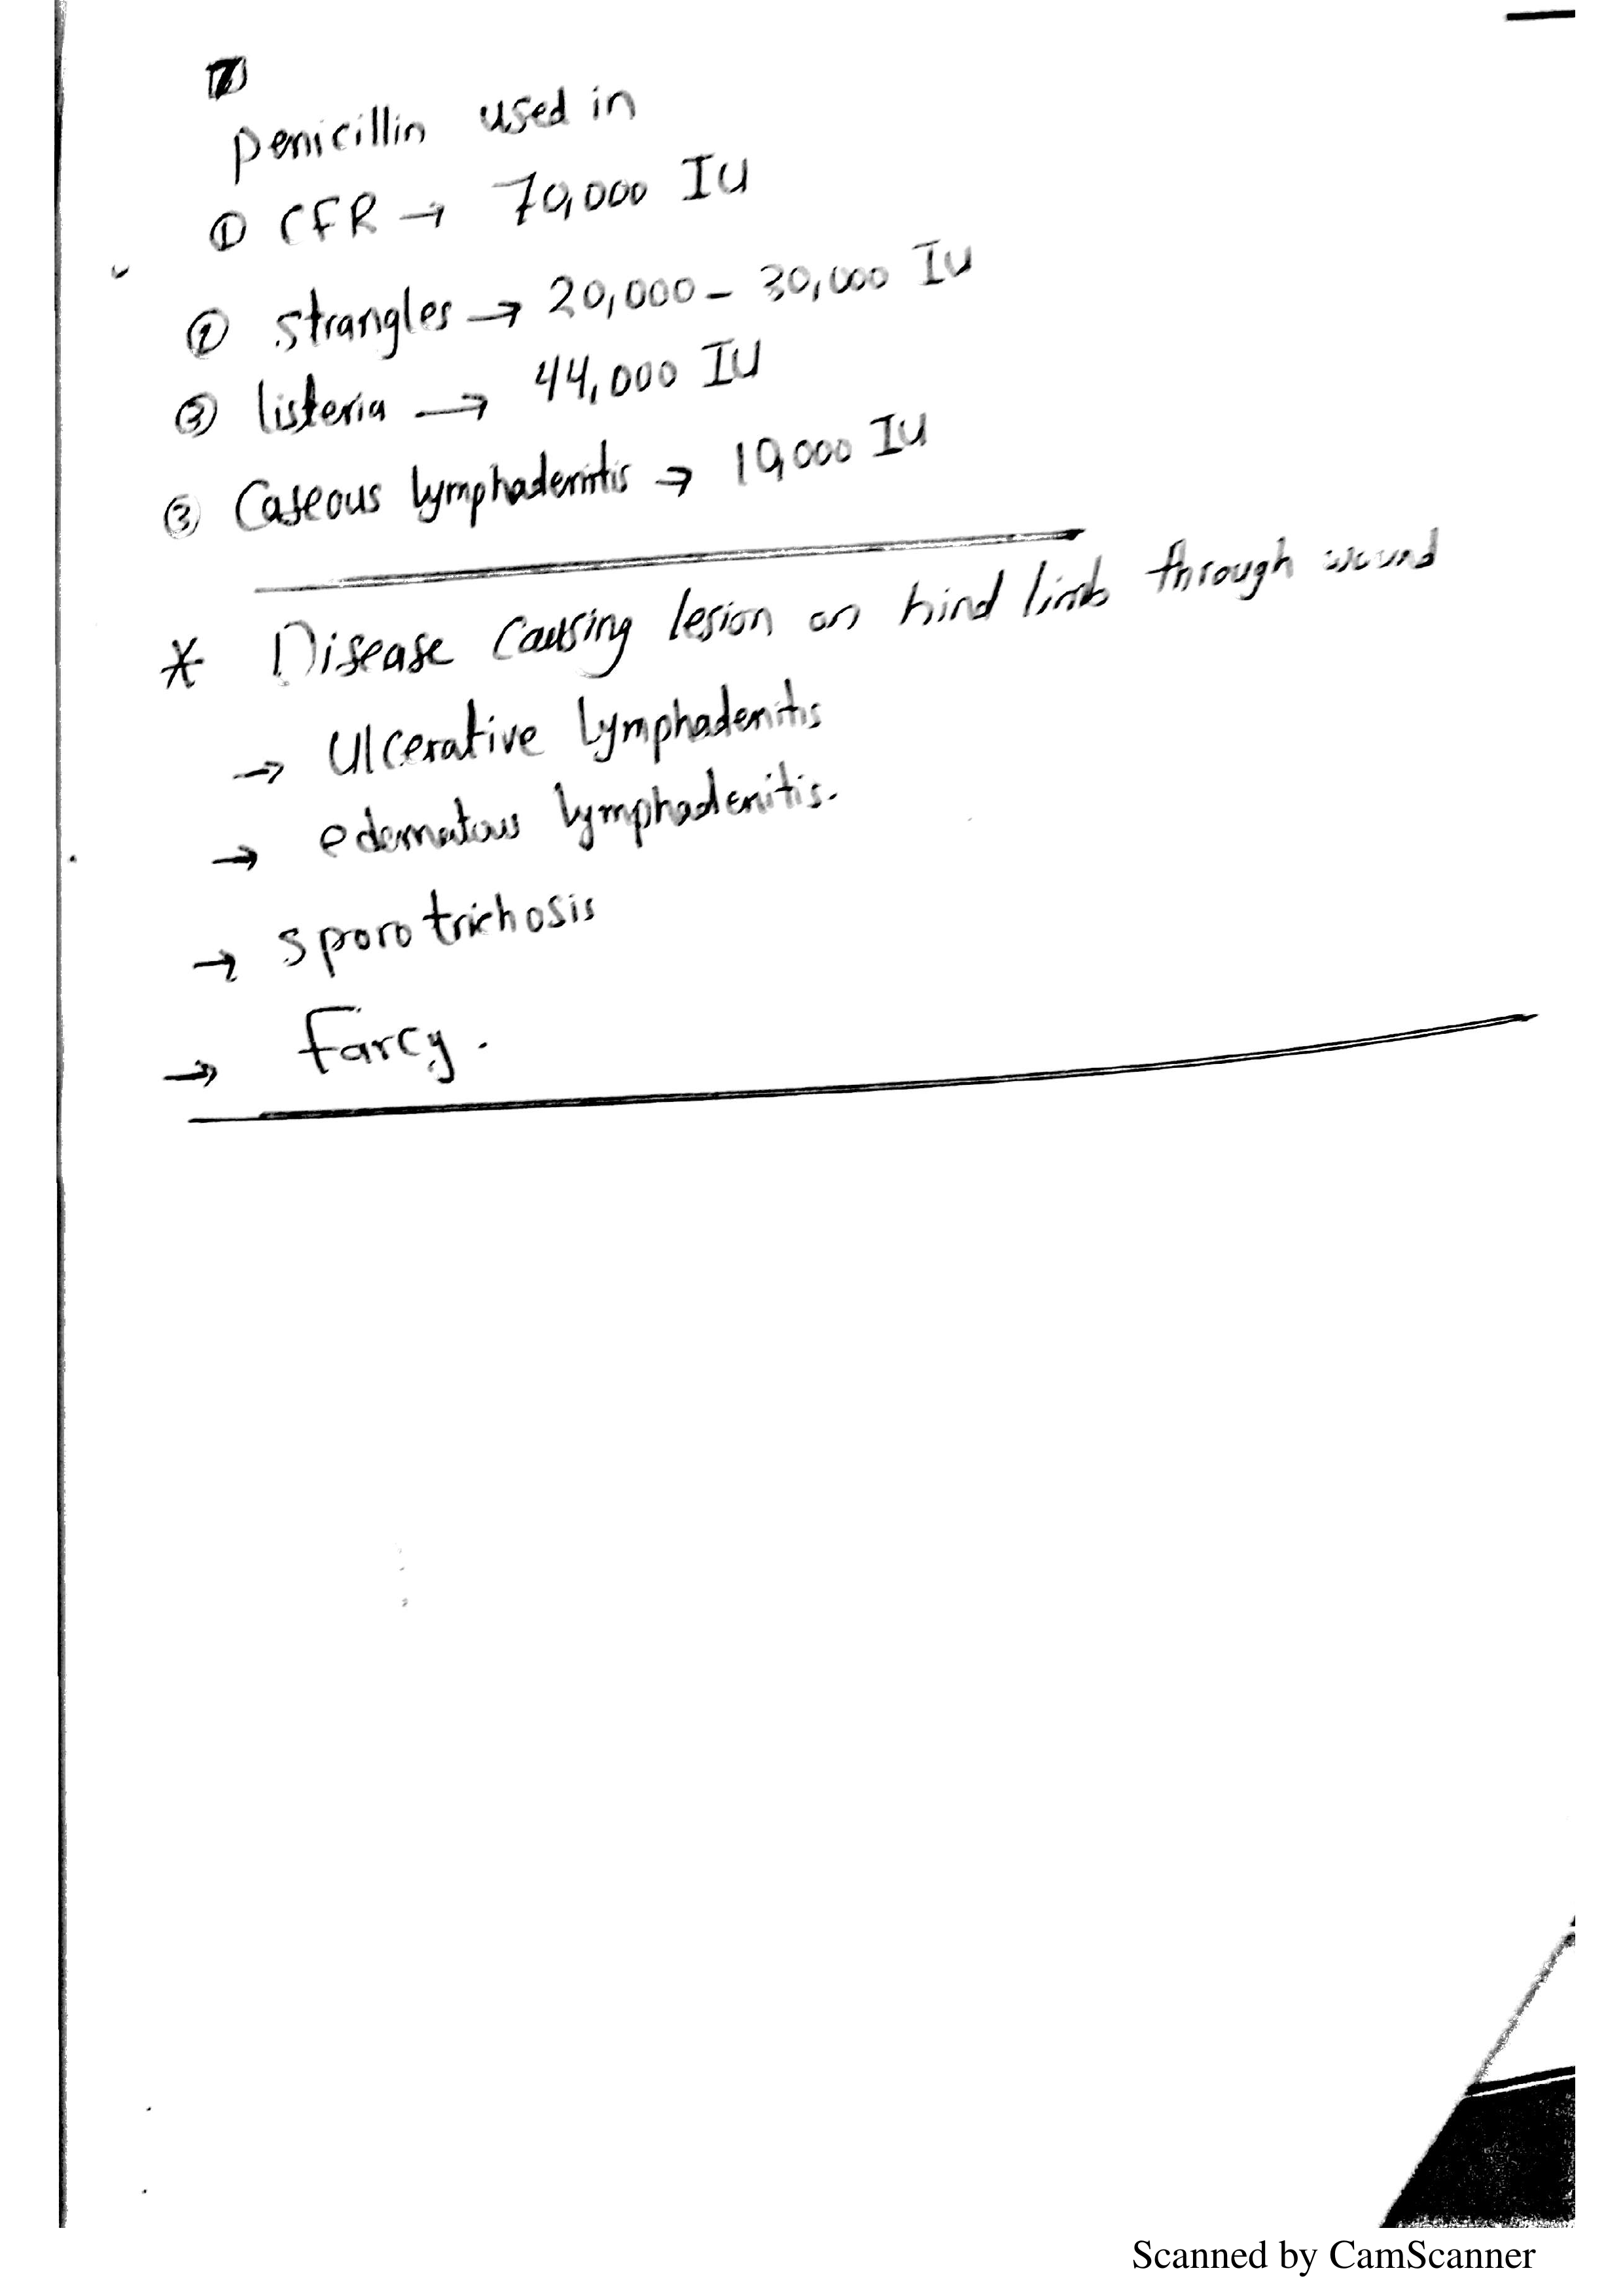 7
penicillin used in
① CFR → 70,000 IU
② strangles → 20,000 - 30,000 IU
③ listeria → 44,000 IU
③ Caseous lymphadenitis → 10,000 IU
* Disease causing lesion on hind limb through wound
→ Ulcerative lymphadenitis
→ edematous lymphadenitis.
→ sporotrichosis
→ Farcy.
Scanned by CamScanner